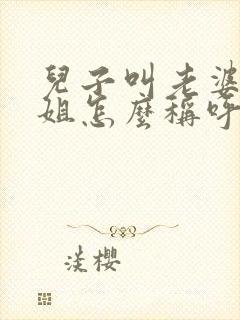 兒子叫老婆
姐怎麼稱呼
淡櫻